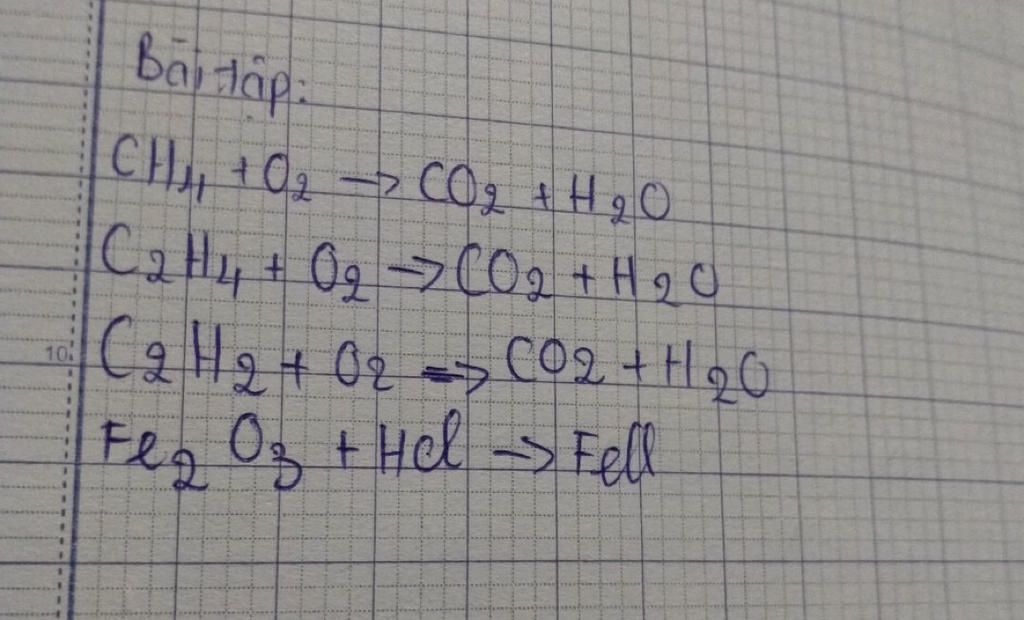 Bài tập:
CH4 + O2 → CO2 + H2O
C2H4 + O2 → CO2 + H2O
10.
C2H2 + O2 → CO2 + H2O
Fe2O3 + HCl → FeCl